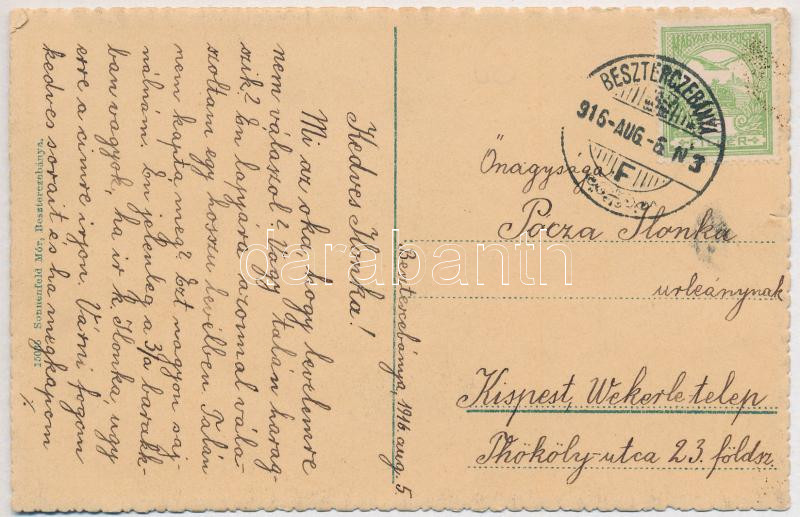 Kedves Ilonka!
Mi az oka, hogy levelemre
nem válaszol? Vagy talán harag-
szik? Én lapjára azonnal vála-
szoltam egy hosszu levélben. Talán
nem kapta meg? Ezt nagyon saj-
nálnám. Én jelenleg a 3/a barakk-
ban vagyok, ha ir k. Ilonka, ugy
erre a cimre irjon. Várni fogom
kedves sorait és ha megkapom
/.
15096 Sonnenfeld Mór, Beszterczebánya.
Besztercebánya, 1916 aug. 5
MAGYAR KIR. POSTA
BESZTERCZEBÁNYA
916-AUG.-6. N 3
F
Őnagysága
Pócza Ilonka
urleánynak
Kispest, Wekerle telep
Thököly-utca 23. földsz.
darabanth